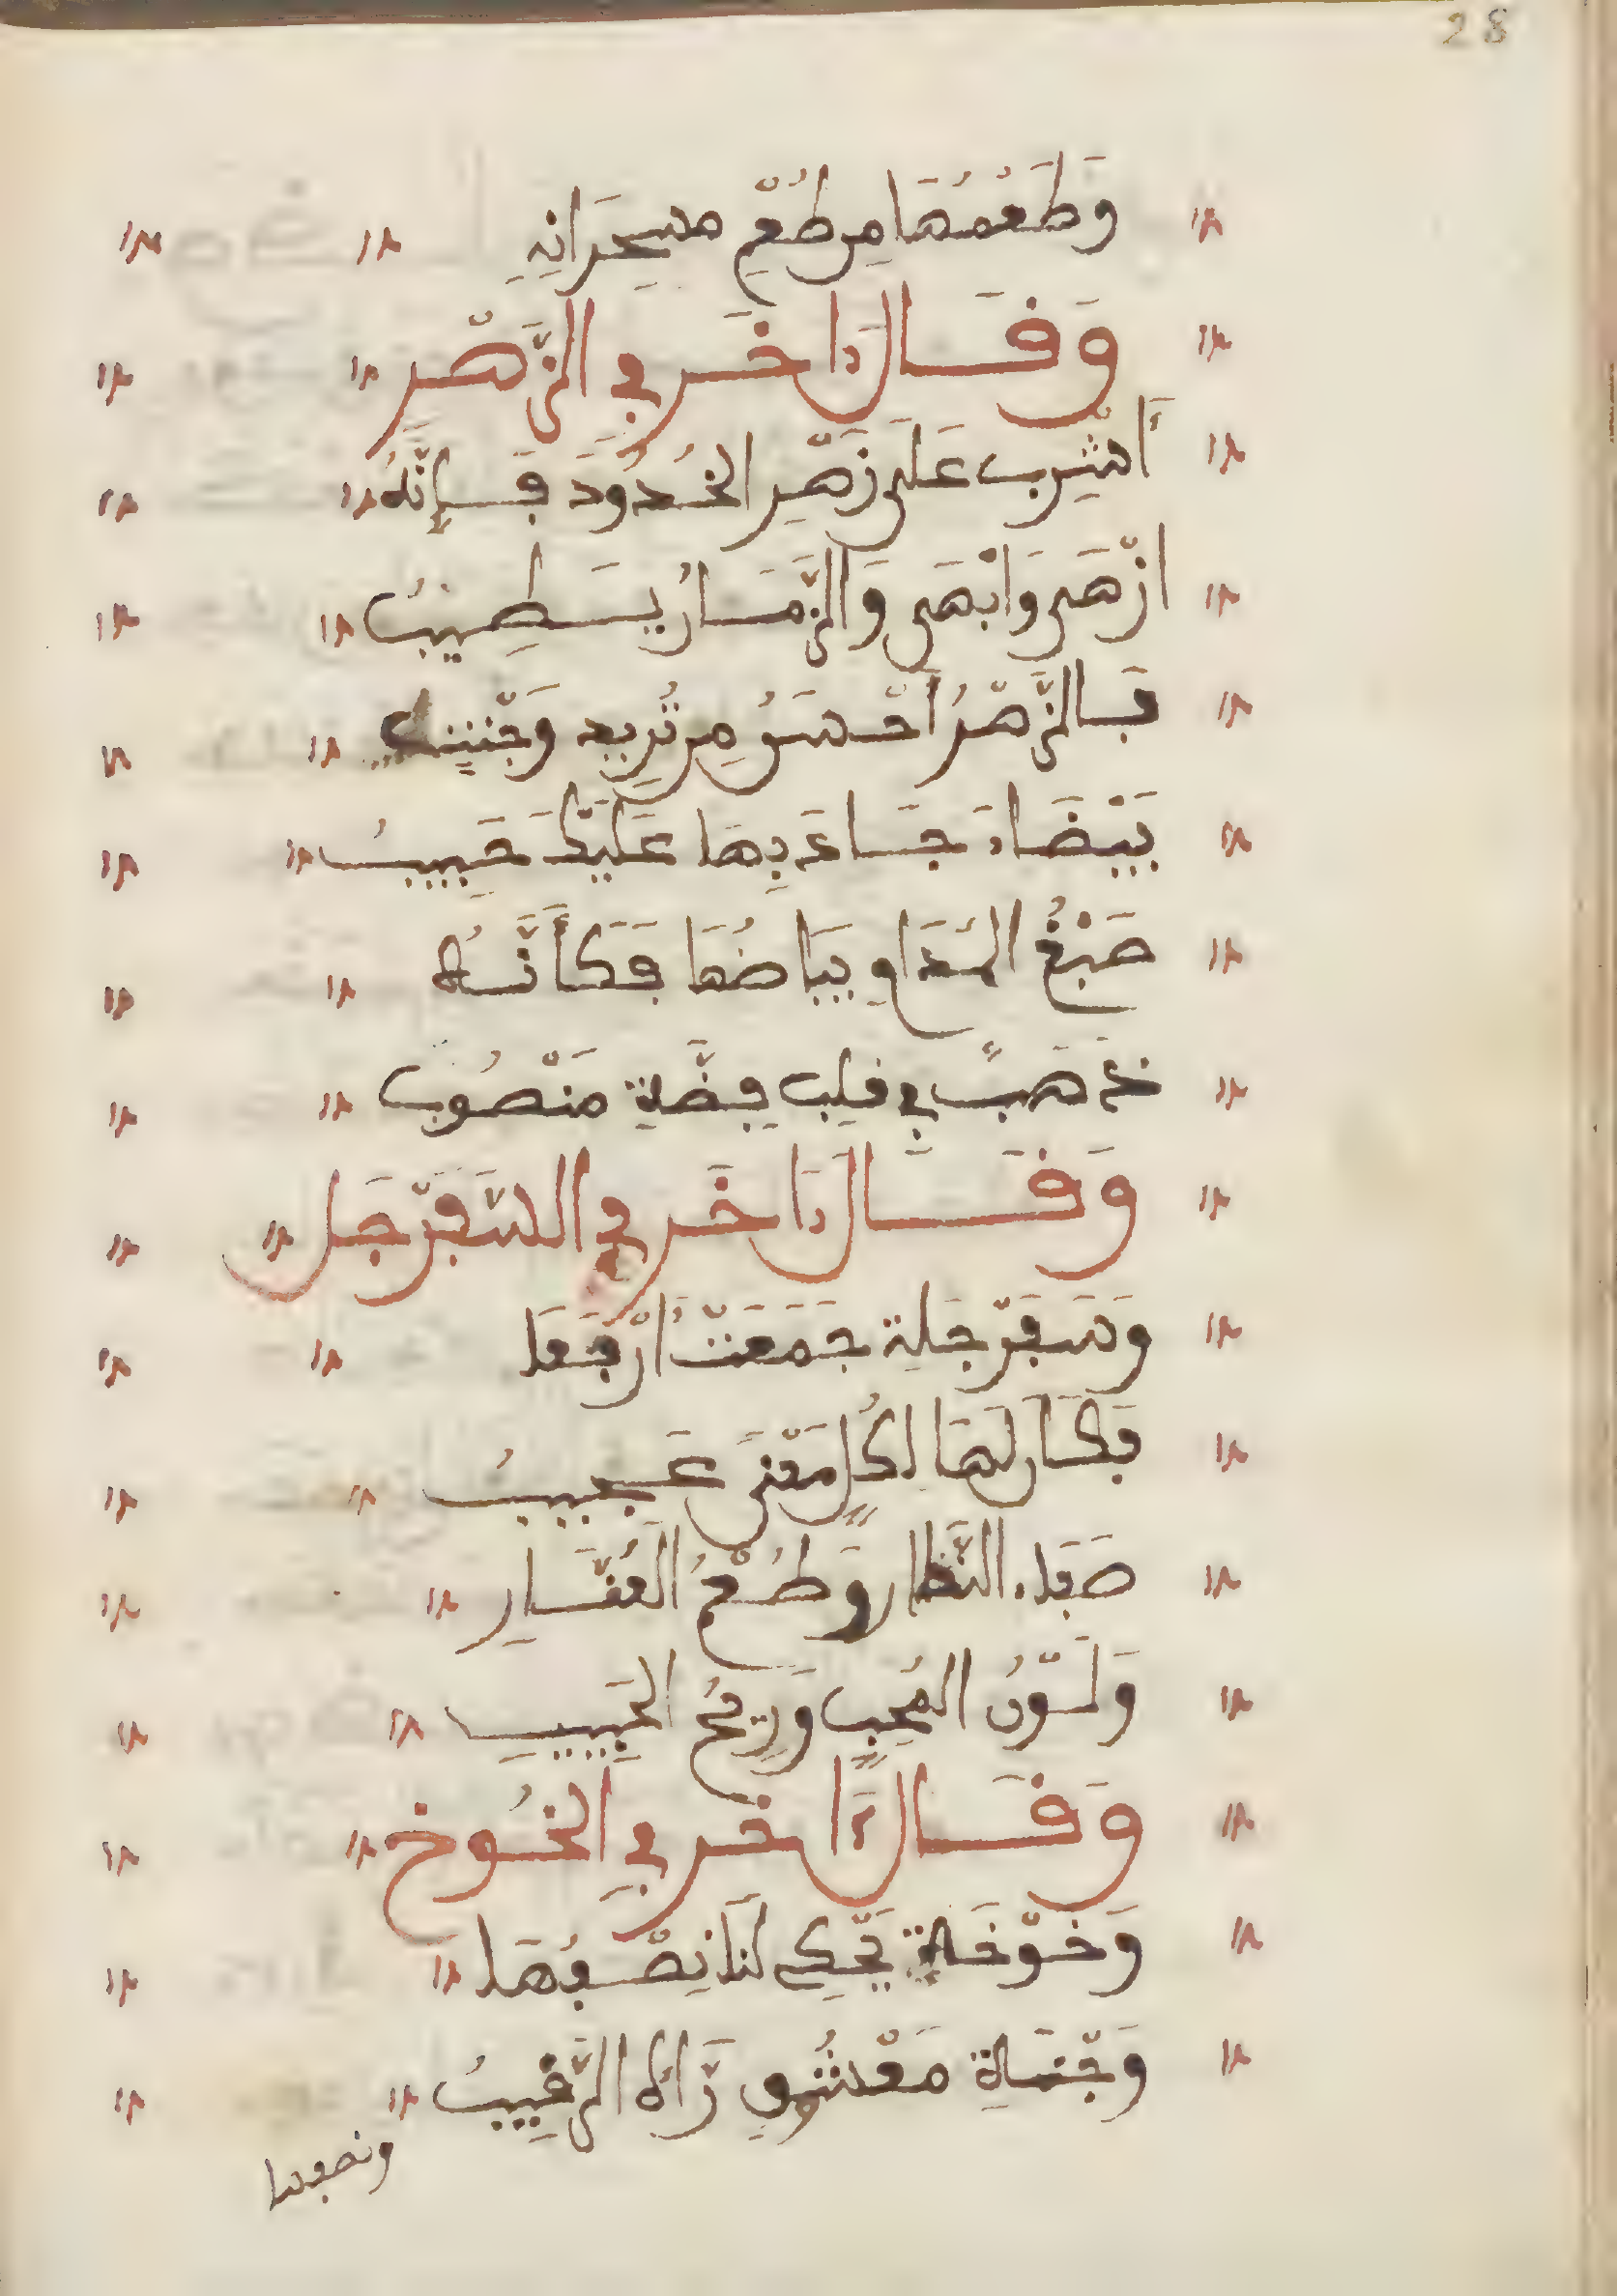 28
وَطَعْمُهَا مِن طَعْمِ هِجْرَانِهِ
وَقَالَ ءَاخَر فِي الزَّهْر
أَشْرِب عَلَى زَهْرِ الخُدُودَ فَإِنَّهُ
ازْهَى وَابْهَى وَالزَّمَانُ يَطِيبُ
فَالزَّهْرُ أَحْسَنُ مِن تُرِيد وَجْنَة
بَيْضَاءَ جَاءَ بِهَا عَلَيْكَ حَبِيبُ
صَبْغُ المُدَامِ بَيَاضُهَا فَكَأَنَّهُ
ذَهَبٌ فِي قلب فِضَّةٍ مَنْصُوبُ
وَقَالَ ءَاخَر فِي السَّفَرْجَل
وَسَفَرْجَلَةٍ جَمَعَتْ أَرْبَعًا
فَكَانَ لَهَا لكُلِّ مَعْنًى عَجِيبُ
صَفَاءُ النُّضَارِ وَطُعْمُ العُقَارِ
وَلَوْنُ المُحِبِّ وَرِيحُ الحَبِيبِ
وَقَالَ ءَاخَر فِي الخُوخ
وَخَوْخَةٍ يَحْكِي لَنَا نِصْفُهَا
وَجْنَةَ مَعْشُوقٍ رَّءَاهُ الرَّقِيبُ
ونصفها